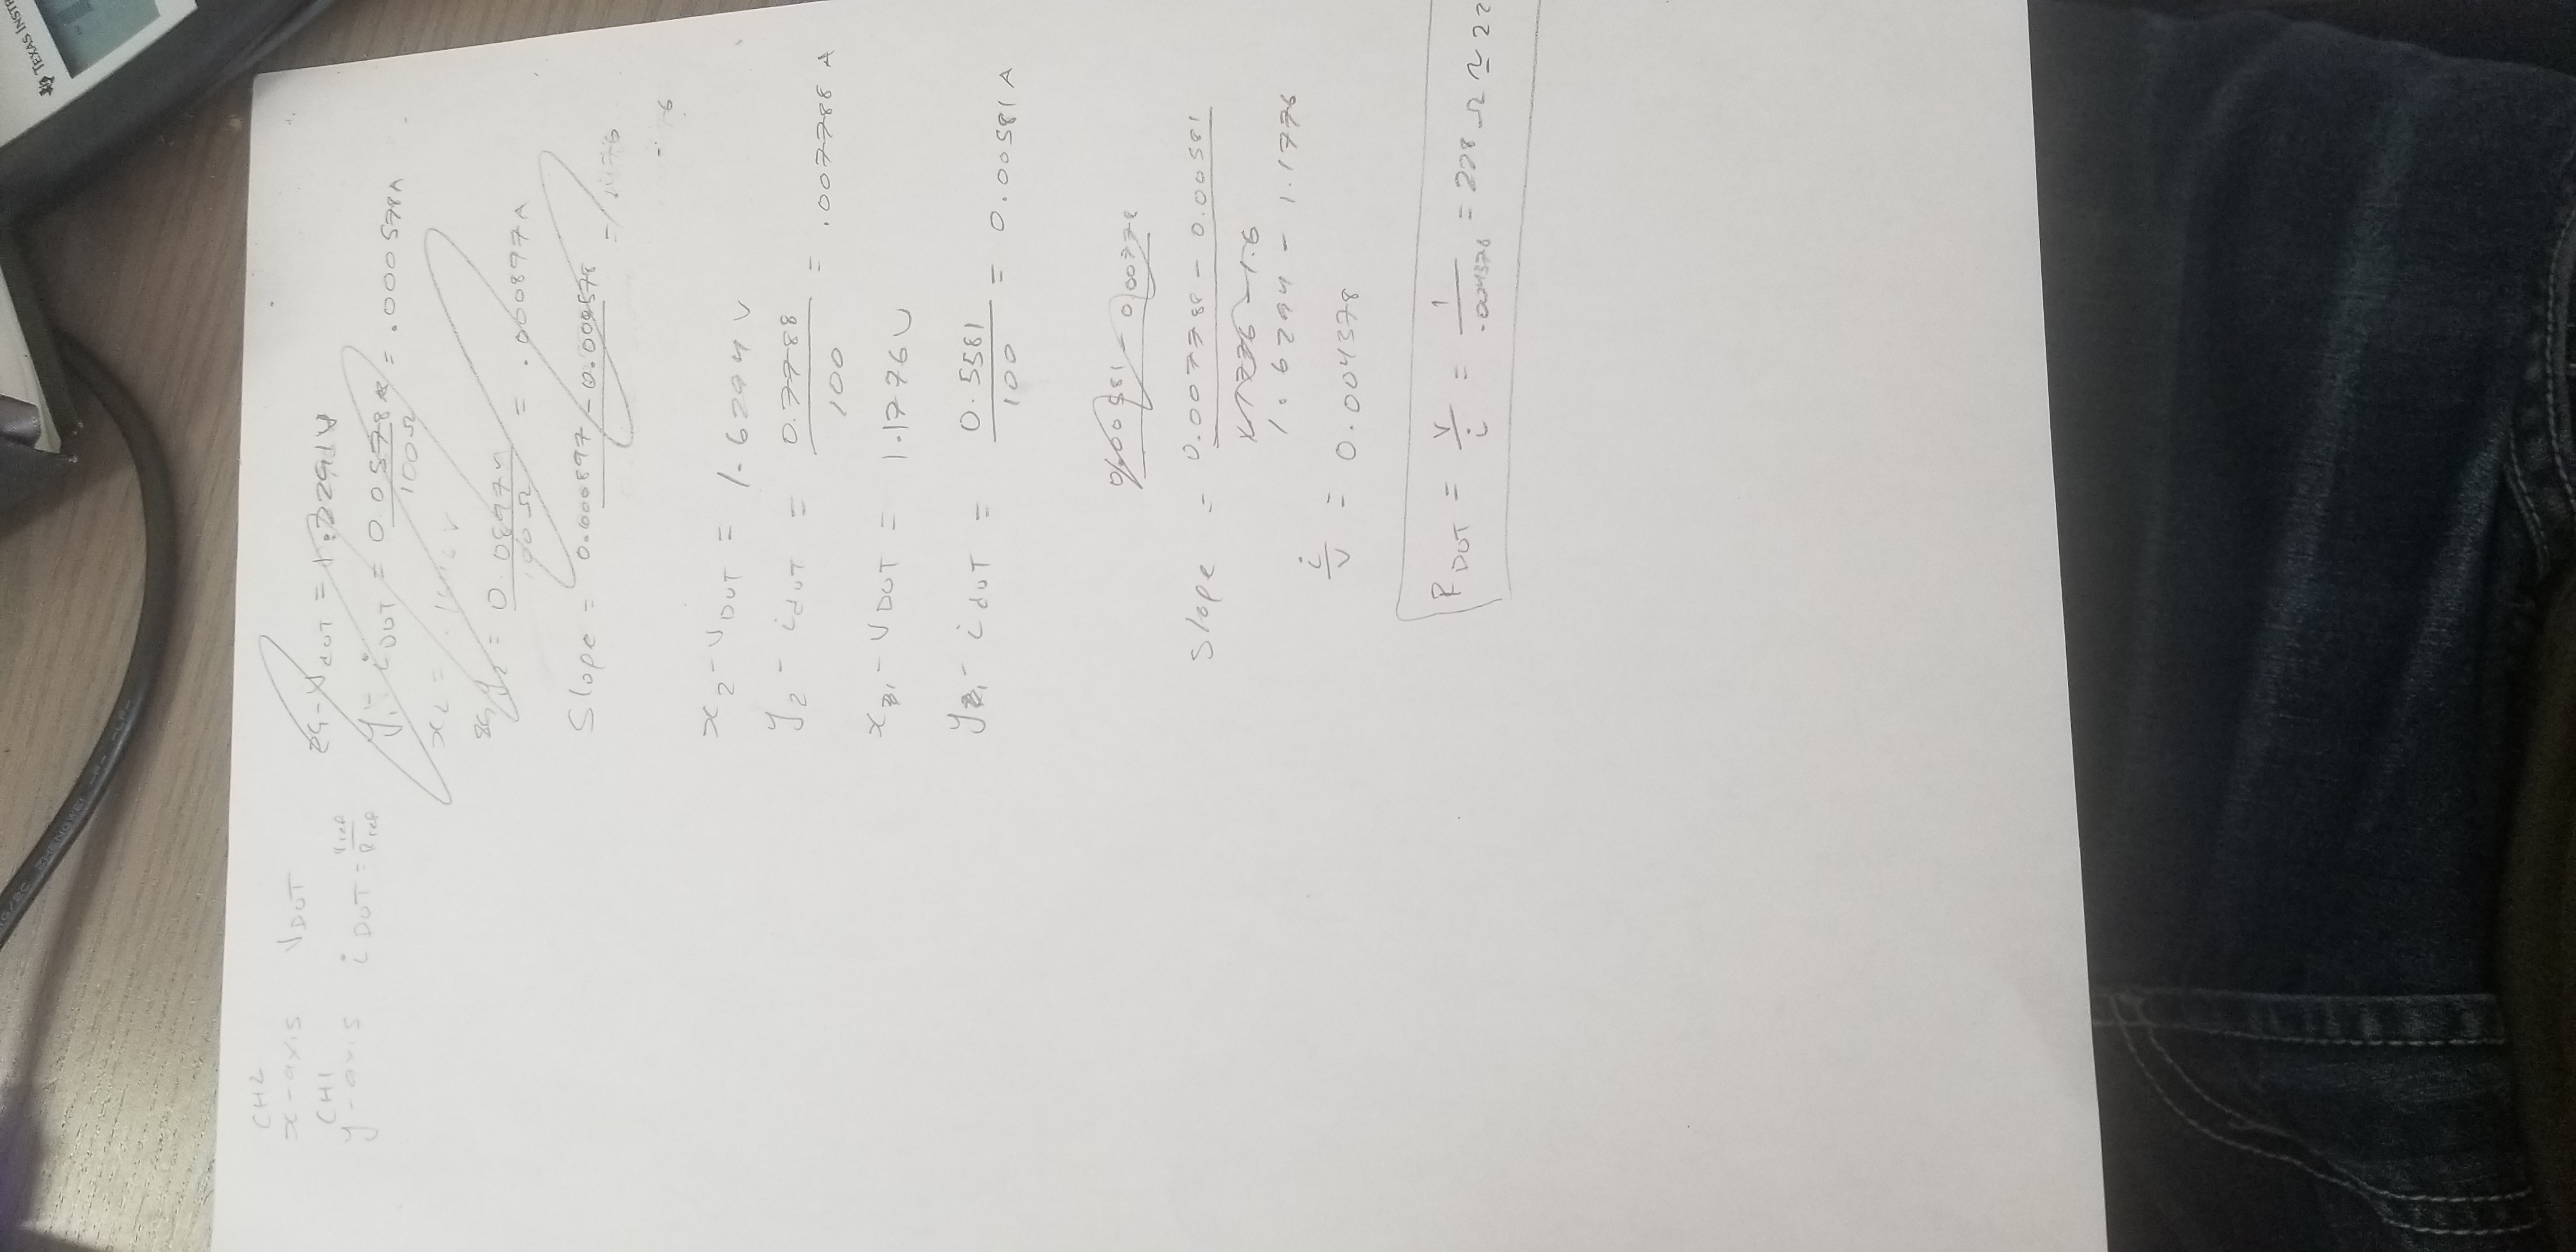 TEXAS INSTR
ZHENGWEI
CH2
x-axis VDUT
CH1
y-axis iDUT = Vref/Rref
VdUT = 1.2291V
y1- iDUT = 0.0578 / 100Ω = .000578A
x2 =
y2 = 0.0897 / 100Ω = .000897A
Slope = 0.000897 - 0.000578 =
x2 - VDUT = 1.6294 V
y2 - idUT = 0.7788 / 100 = .007788 A
x1 - VDUT = 1.1776V
y1 - idUT = 0.5581 / 100 = 0.00581A
0.00581 - 0.00778
Slope = 0.007788 - 0.00581
1.1776 - 1.6
1.6294 - 1.1776
i/v = 0.004378
RDUT = v/i = 1/.004378 = 228 Ω ≃ 22